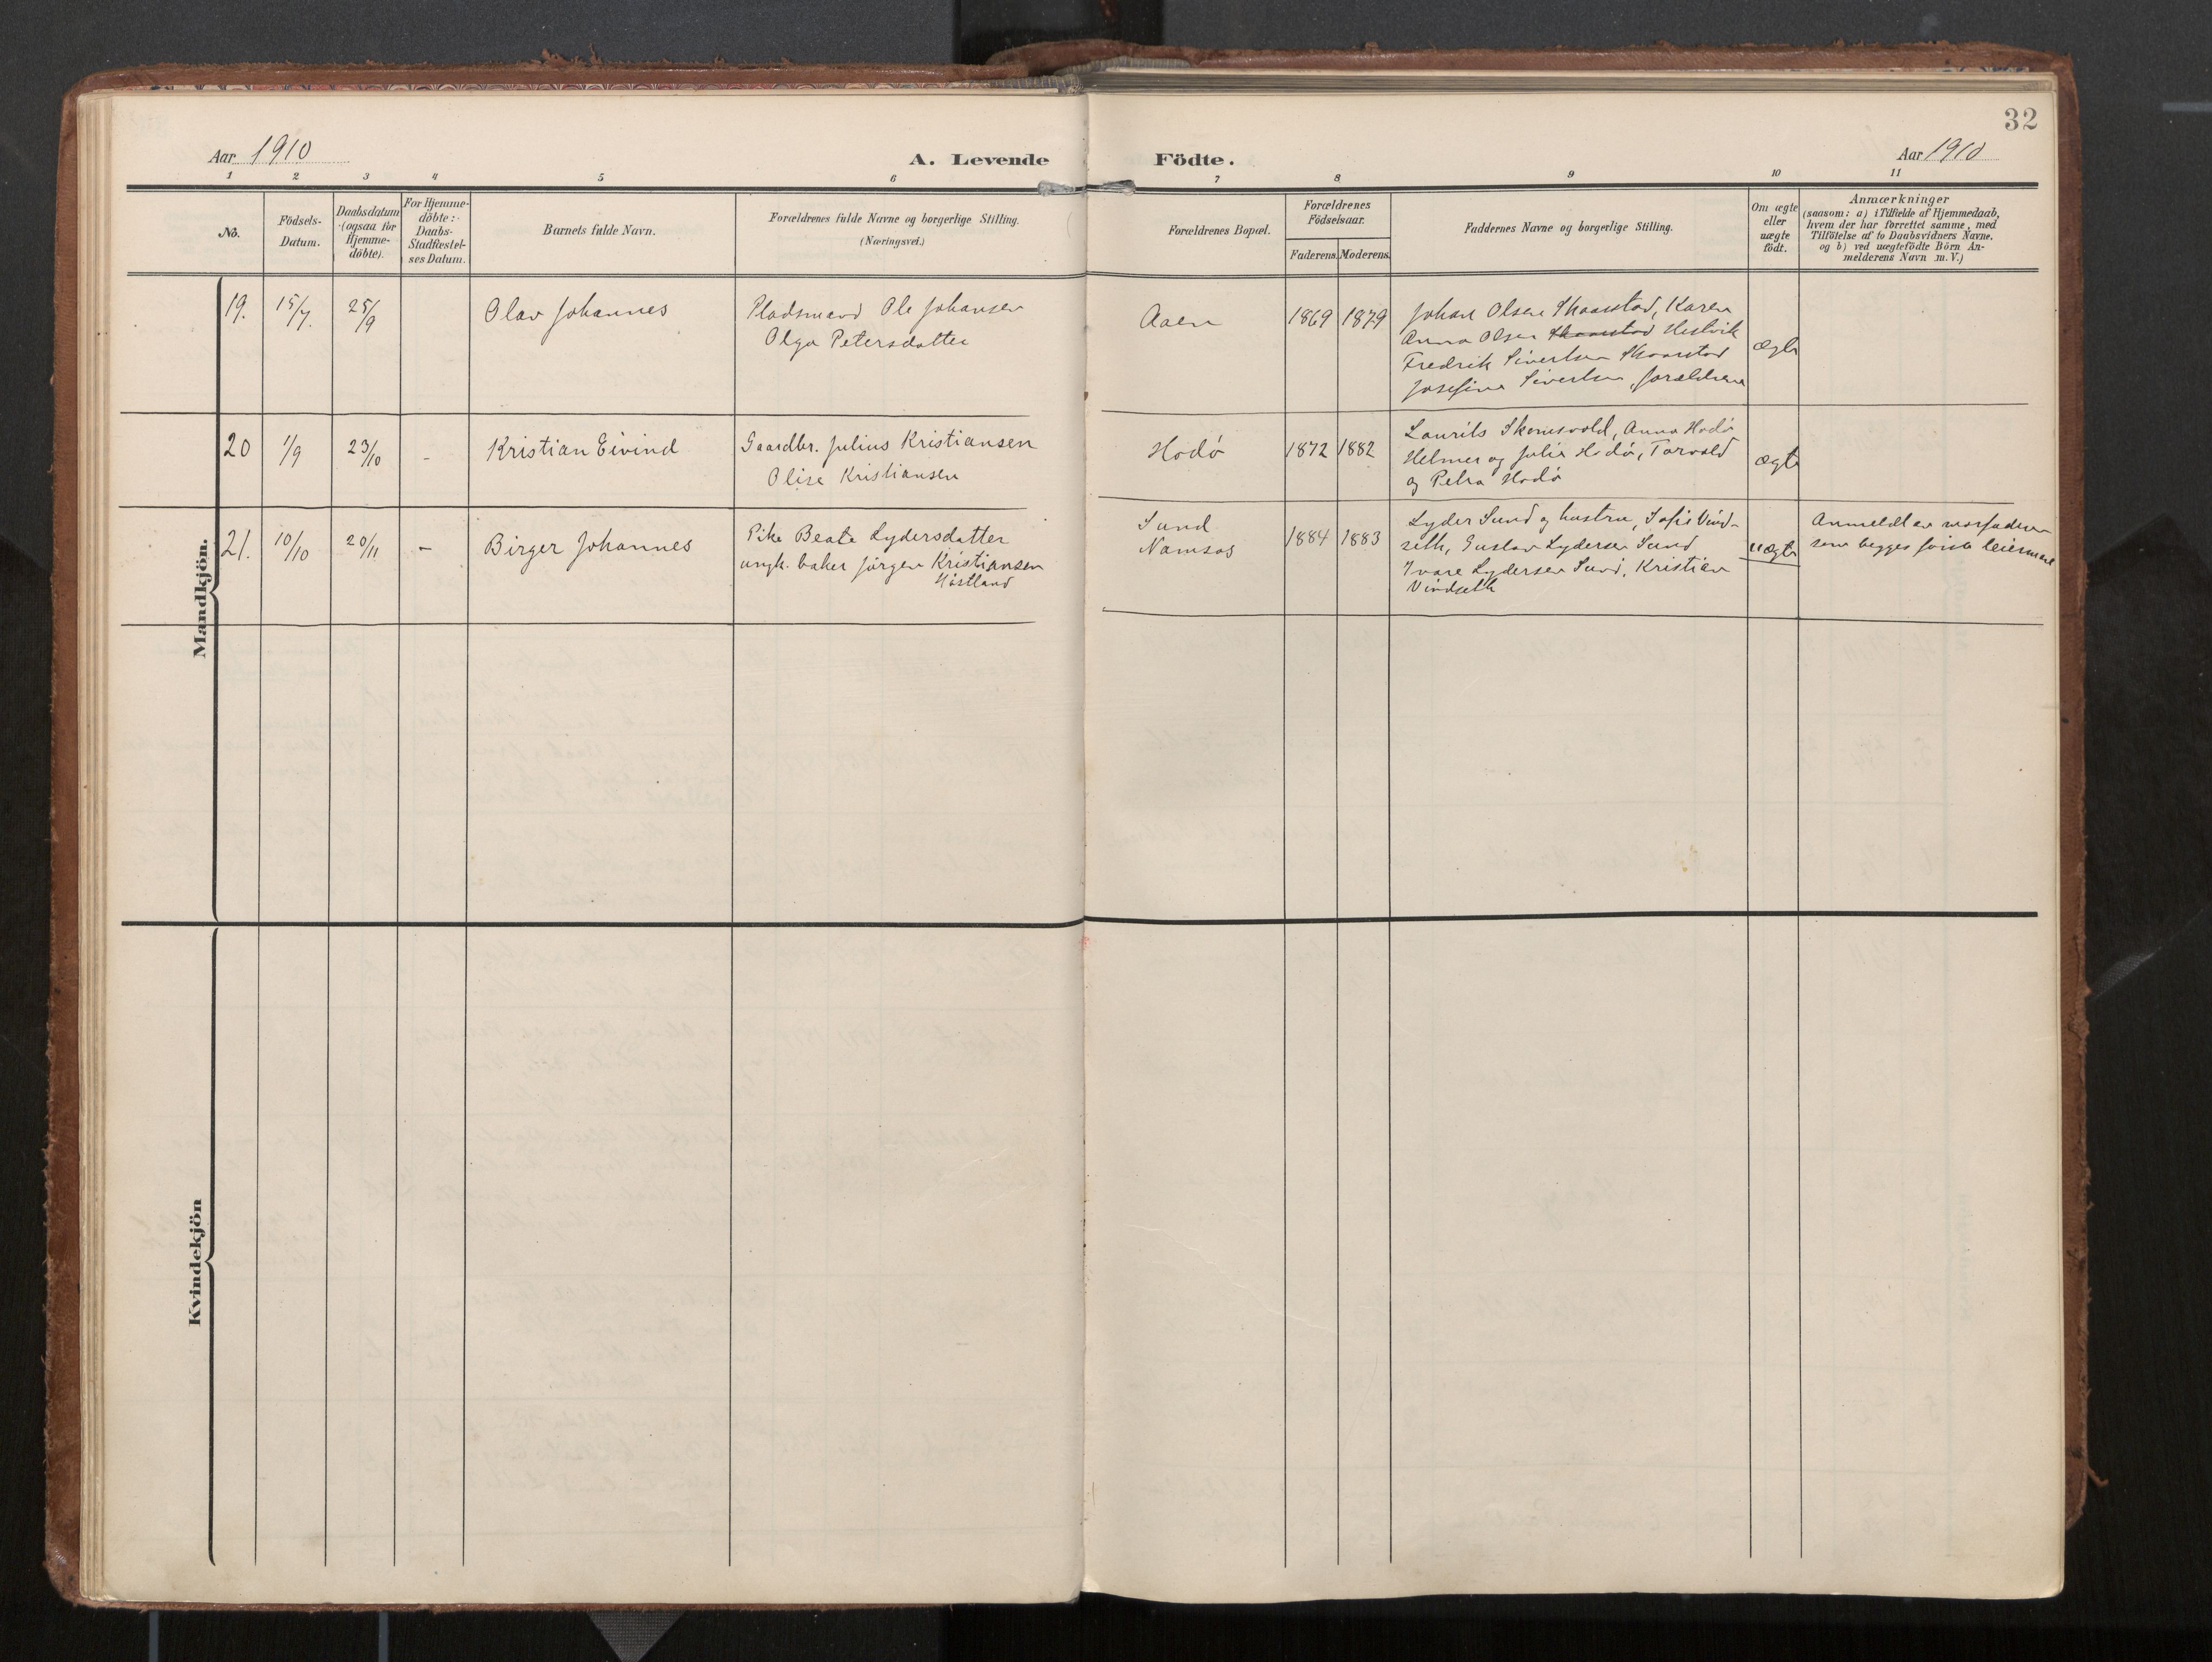 32
Aar 1910
A. Levende
Födte.
Aar 1910
1 2 3 4 5 6 7 8 9 10 11
No.
Födsels-
Datum.
Daabsdatum
(ogsaa for
Hjemme-
döbte).
For Hjemme-
döbte:
Daabs-
Stadfæstel-
ses Datum.
Barnets fulde Navn.
Forældrenes fulde Navne og borgerlige Stilling.
(Næringsvei.)
Forældrenes Bopæl.
Forældrenes
Födselsaar.
Faderens. Moderens.
Faddernes Navne og borgerlige Stilling.
Om ægte
eller
uægte
födt.
Anmærkninger
(saasom: a) i Tilfælde af Hjemmedaab,
hvem der har forrettet samme, med
Tilföielse af to Daabsvidners Navne.
og b) ved uægtefödte Börn An-
melderens Navn m.V.)
Mandkjön.
19. 15/7. 25/9
Olav Johannes
Pladsmand Ole Johansen
Olga Petersdatter
Aaen
1869 1879
Johan Olsen Skaarstad, Karen
Anna Olsen Skaarstad Hestvik
Fredrik Sivertsen Skaarstad
Josefine Sivertsen, forældrene
ægte
20 1/9 23/10 -
Kristian Eivind
Gaardbr. Julius Kristiansen
Olise Kristiansen
Hodö
1872 1882
Laurits Skomsvold, Anna Hodö
Helmer og Julie Hodö, Torvald
og Petra Hodö
ægte
21. 10/10 20/11 -
Birger Johannes
Pike Beate Lydersdatter
ungk. baker Jörgen Kristiansen
Höstland
Sund
Namsos
1884 1883
Lyder Sund og hustru, Sofie Vind-
seth, Gustav Lydersen Sund
Ivare Lydersen Sund, Kristian
Vindseth
uægte
Anmeldt av morfaderen
som begges förste leiermaal
Kvindekjön